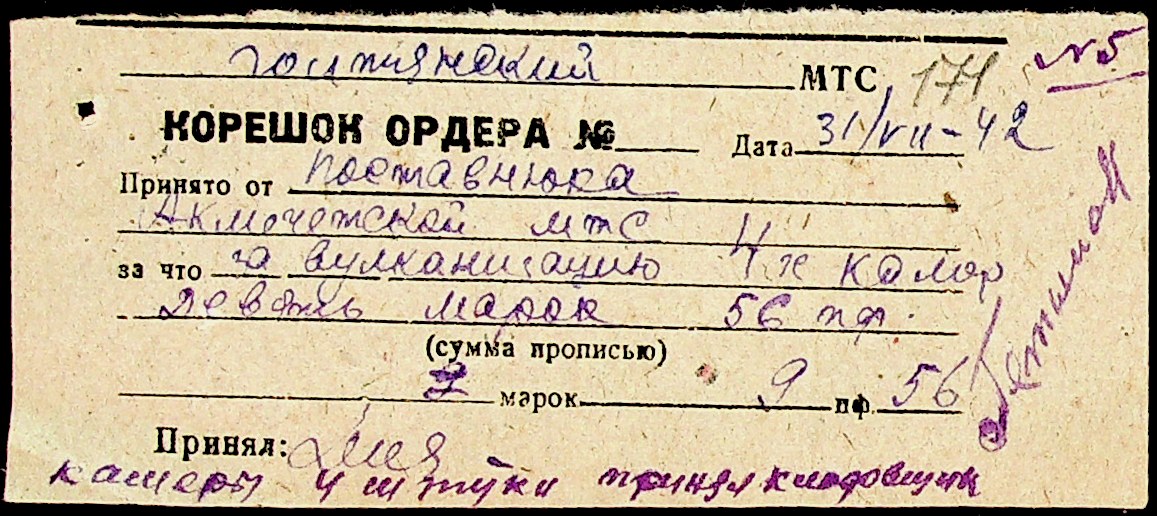 Голтянский МТС 174 № 5
КОРЕШОК ОРДЕРА №
Дата 31/VII-42
Принято от Поставнюка
Акмечетской мтс
за что за вулканизацию 4х камор
Девять марок 56 пф.
(сумма прописью)
марок 9 пф. 56
Принял:
камеры 4 штуки принял кладовщик